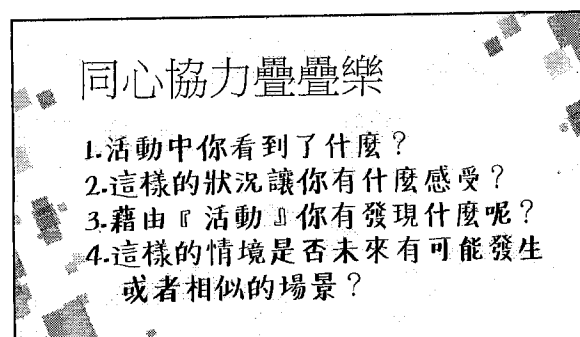 同心協力疊疊樂
1.活動中你看到了什麼？
2.這樣的狀況讓你有什麼感受？
3.藉由『活動』你有發現什麼呢？
4.這樣的情境是否未來有可能發生
或者相似的場景？